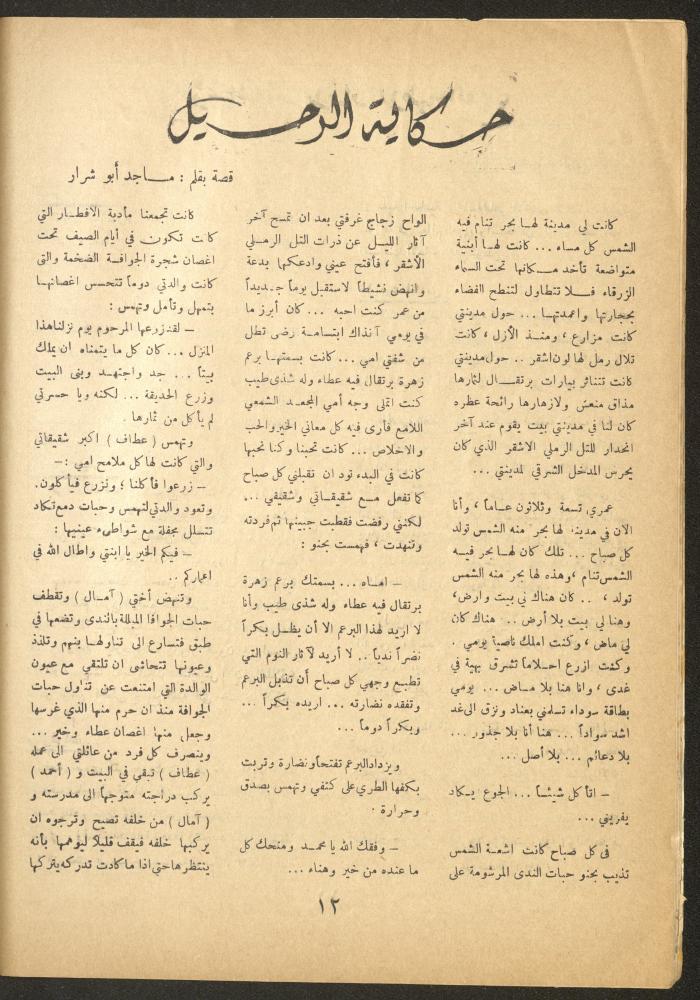 حكاية الرحيل
قصة بقلم : مـاجد أبو شرار
كانت لي مدينة لهـا بحر تنام فيه
الشمس كل مساء ... كانت لهـا أبنية
متواضعة تأخد مكانها تحت السماء
الزرقاء فـلا تتطاول لتنطح الفضاء
بحجارتها واعمدتهـا ... حول مدينتي
كانت مزارع ، ومنـذ الأزل ، كانت
تلال رمل لها لون اشقر .. حول مدينتي
كانت تتناثر بيارات برتقـال لثمارها
مذاق منعش ولازهارها رائحة عطره
كان لنا في مدينتي بيت يقوم عند آخر
انحدار للتل الرملي الاشقر الذي كان
يحرس المدخل الشرقي لمدينتي ...
عمري تسعة وثلاثون عـاماً ، وأنا
الآن في مدينة لها بحر منه الشمس تولد
كل صباح ... تلك كان لهـا بحر فيـه
الشمس تنام ، وهذه لها بحر منه الشمس
تولد ، .. كان هناك لي بيت وارض،
وهنا لي بيت بلا أرض .. هناك كان
لي ماض ، وكنت املك ناصية يومي .
وكنت ازرع احـلاماً تشرق بهية في
غدى ، وانا هنا بلا مـاض ... يومي
بطاقة سوداء تسلمني بعناد ونزق الى غد
اشد سواداً ... هنا أنا بلا جذور ...
بلا دعائم ... بلا أصل ...
ـ اتأكل شيئـاً ... الجوع يـكاد
يفريني ...
في كل صباح كانت اشعـة الشمس
تذيب بحنو حبات الندى المرشومة على
الواح زجاج غرفتي بعد ان تمسح آخر
آثار الليـل عن ذرات التل الرمـلي
الأشقر ، فأفتح عيني وادعكها بدعة
وانهض نشيطاً لاستقبل يوماً جـديداً
من عمر كنت احبه ... كان أبرز ما
في يومي آنذاك ابتسـامـة رضى تطل
من شفتي امي ... كانت بسمتهـا برعم
زهرة برتقال فيه عطاء وله شذى طيب
كنت اتملى وجه أمي المجعـد الشمعي
اللامع فأرى فيه كل معاني الخير والحب
والاخلاص ... كانت تحبنا وكنا نحبها
كانت في البدء تود ان تقبلني كل صباح
كما تفعل مـع شقيقـاتي وشقيقي ...
لكنني رفضت فقطبت جبينها ثم فردته
وتنهدت ، فهمست بحنو :
ـ امـاه ... بسمتك برعم زهرة
برتقال فيه عطاء وله شذى طيب وأنا
لا اريد لهذا البرعم الا أن يظـل بكراً
نضراً ندياً .. لا أريد لآثار النوم التي
تطبـع وجهي كل صباح أن تقابل البرعم
وتفقده نضارته ... اريده بـكراً ...
وبكراً دوماً ...
ويزداد البرعم تفتحاً ونضارة وتربت
بكفها الطري على كتفي وتهمس بصدق
وحرارة .
ـ وفقك الله يا محمـد ومنحك كل
ما عنده من خير وهناء ...
كانت تجمعنا مأدبة الافطـار التي
كانت تـكون في أيام الصيف تحت
اغصان شجرة الجوافـة الضخمة والتي
كانت والدتي دوماً تتحسس اغصانهـا
بتمهل وتأمل وتهمس :
ـ لقد زرعها المرحوم يوم نزلنا هذا
المنزل ... كان كل ما يتمناه ان يملك
بيتاً ... جد واجتهـد وبنى البيت
وزرع الحديقة ... لكنه ويا حسرتي
لم يأكل من ثمارها .
وتهمس ( عطاف ) اكبر شقيقاتي
والتي كانت لها كل ملامح امي :ـ
ـ زرعوا فأكلنا ؛ ونزرع فيأكلون.
وتعود والدتي لتهمس وحبات دمع تكاد
تتسلل مجفلة مع شواطىء عينيها :
ـ فيكم الخير يا ابنتي واطال الله في
اعماركم ..
وتنهض أختي ( آمـال ) وتقطف
حبات الجوافا المبللة بالندى وتضعها في
طبق فتسارع الى تناولهـا بنهم وتلذذ
وعيونها تتحاشى ان تلتقي مع عيون
الوالدة التي امتنعت عن تناول حبات
الجوافة منذ ان حرم منها الذي غرسها
وجعل منها اغصان عطاء وخير ...
وينصرف كل فرد من عائلتي الى عمله
( عطاف ) تبقى في البيت و ( أحمد )
يركب دراجته متوجهاً الى مدرسته و
( آمال ) من خلفه تصيح وترجوه ان
يركبها خلفه فيقف قليلاً ليوهمها بأنه
ينتظرها حتى اذا ما كادت تدركه يتركها
١٢